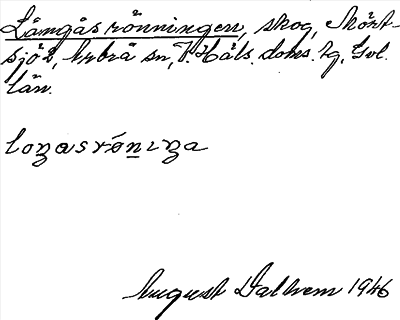 Långåsrönningen, skog, Skört-
sjö 2, Arbrå sn, V. Häls. doms. tg, Gvl.
län.
loŋasrǿnıŋa
August Dalhem 1946